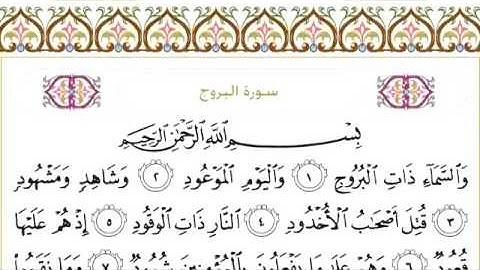 سورة البروج
بِسْمِ اللَّهِ الرَّحْمَٰنِ الرَّحِيمِ
وَالسَّمَاءِ ذَاتِ الْبُرُوجِ ١ وَالْيَوْمِ الْمَوْعُودِ ٢ وَشَاهِدٍ وَمَشْهُودٍ
٣ قُتِلَ أَصْحَابُ الْأُخْدُودِ ٤ النَّارِ ذَاتِ الْوَقُودِ ٥ إِذْ هُمْ عَلَيْهَا
قُعُودٌ ٦ وَهُمْ عَلَىٰ مَا يَفْعَلُونَ بِالْمُؤْمِنِينَ شُهُودٌ ٧ وَمَا نَقَمُوا